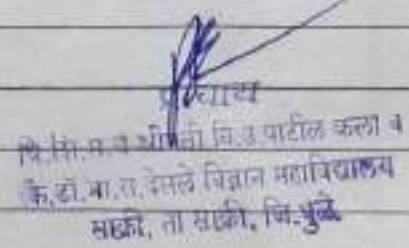 प्राचार्य
वि.शि.प्र.चे श्रीमती वि.उ.पाटील कला व
कै.डॉ.बा.रा.देसले विज्ञान महाविद्यालय
साक्री, ता साक्री, जि.धुळे